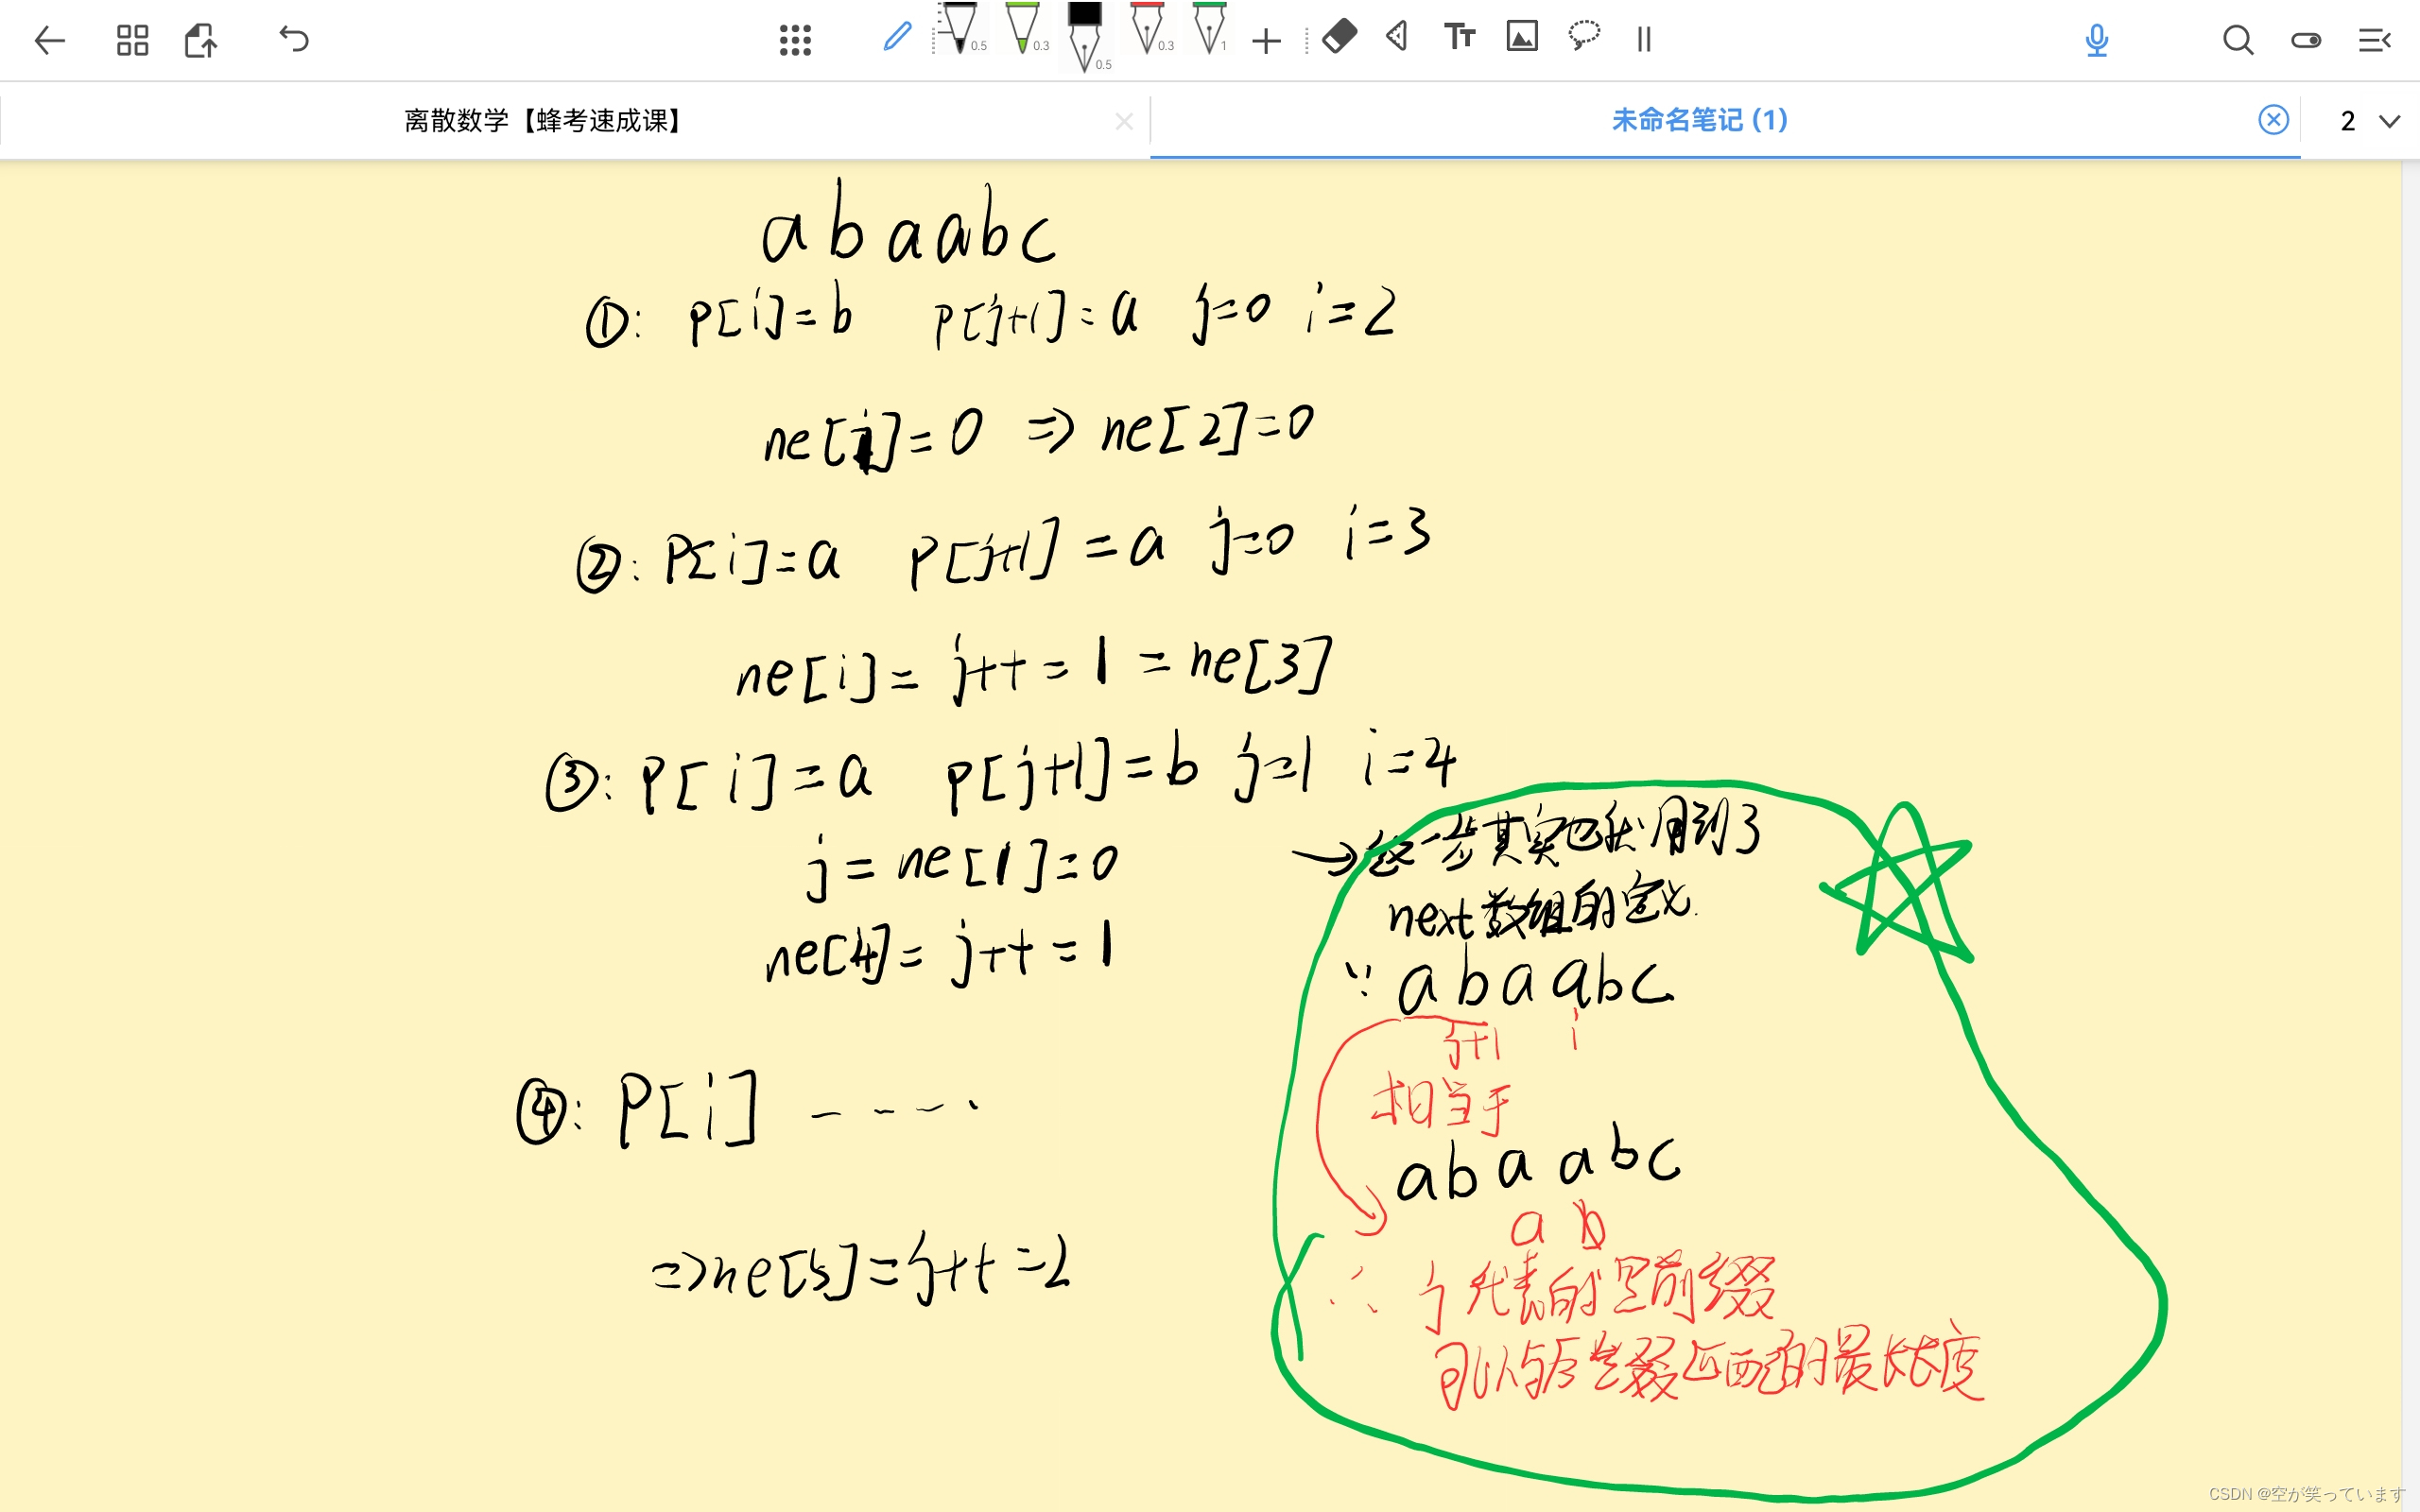 0.5
0.3
0.5
0.3
1
Tт
离散数学【蜂考速成课】
未命名笔记 (1)
2
abaabc
①: P[i]=b P[j+1]=a j=0 i=2
ne[i]=0 ⇒ ne[2]=0
②: P[i]=a P[j+1]=a j=0 i=3
ne[i]=j++=1=ne[3]
③: P[i]=a P[j+1]=b j=1 i=4
j=ne[1]=0
ne[4]=j++=1
→这一步其实也用到了
next数组的定义.
∵ abaabc
j+1 i
相当于
abaabc
a b
∴ j代表的是前缀
可以与后缀匹配的最长长度
④: P[i] ----
⇒ne[5]=j++=2
CSDN @空が笑っています